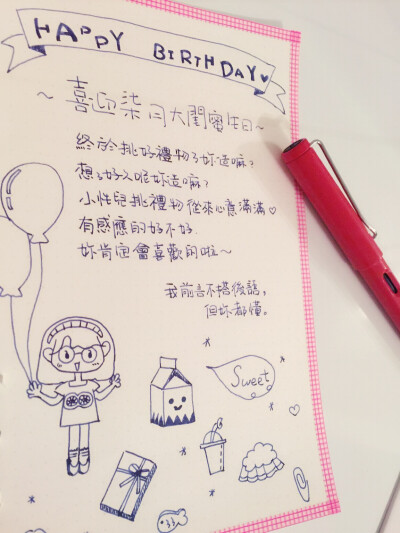 HAPPY BIRTHDAY
~喜迎柒月大閨蜜生日~
終於挑好禮物了妳造嘛?
想了好久呢妳造嘛?
小性兒挑禮物從來心意滿滿♡
有感應的好不好.
妳肯定會喜歡的啦~
我前言不搭後語,
但妳都懂。
Sweet